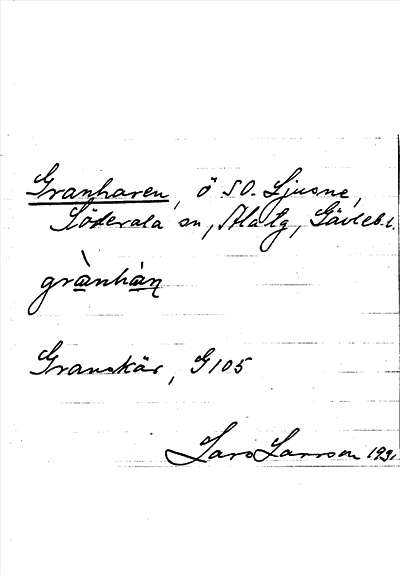 Granharen, ö S.O. Ljusne,
Söderala sn, Hälsg, Gävleb.l.
grànhán
Granskär, G105
Lars Larsson 1931